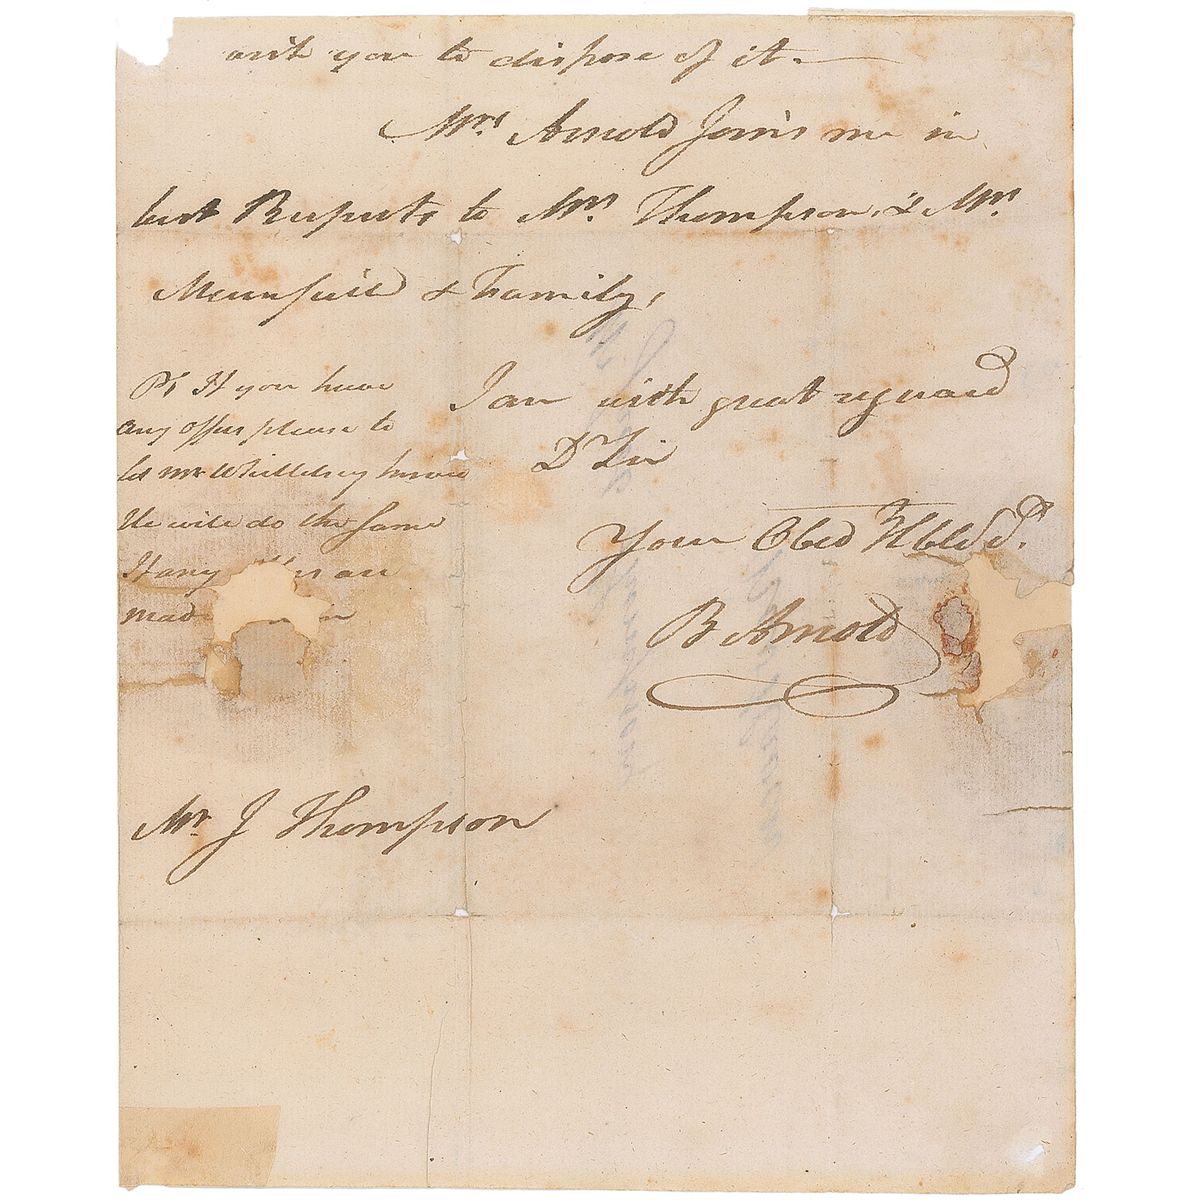 with you to dispose of it.
Mrs Arnold Joins me in
best Respects to Mrs Thompson, & Mrs
& Family,
I am with great reguard
Dr Sir
Your Obed Hble St.
B Arnold
Ps If you have
any offer please to
let Mr Whittelsey know
He will do the same
If any are
mad
Mr J Thompson